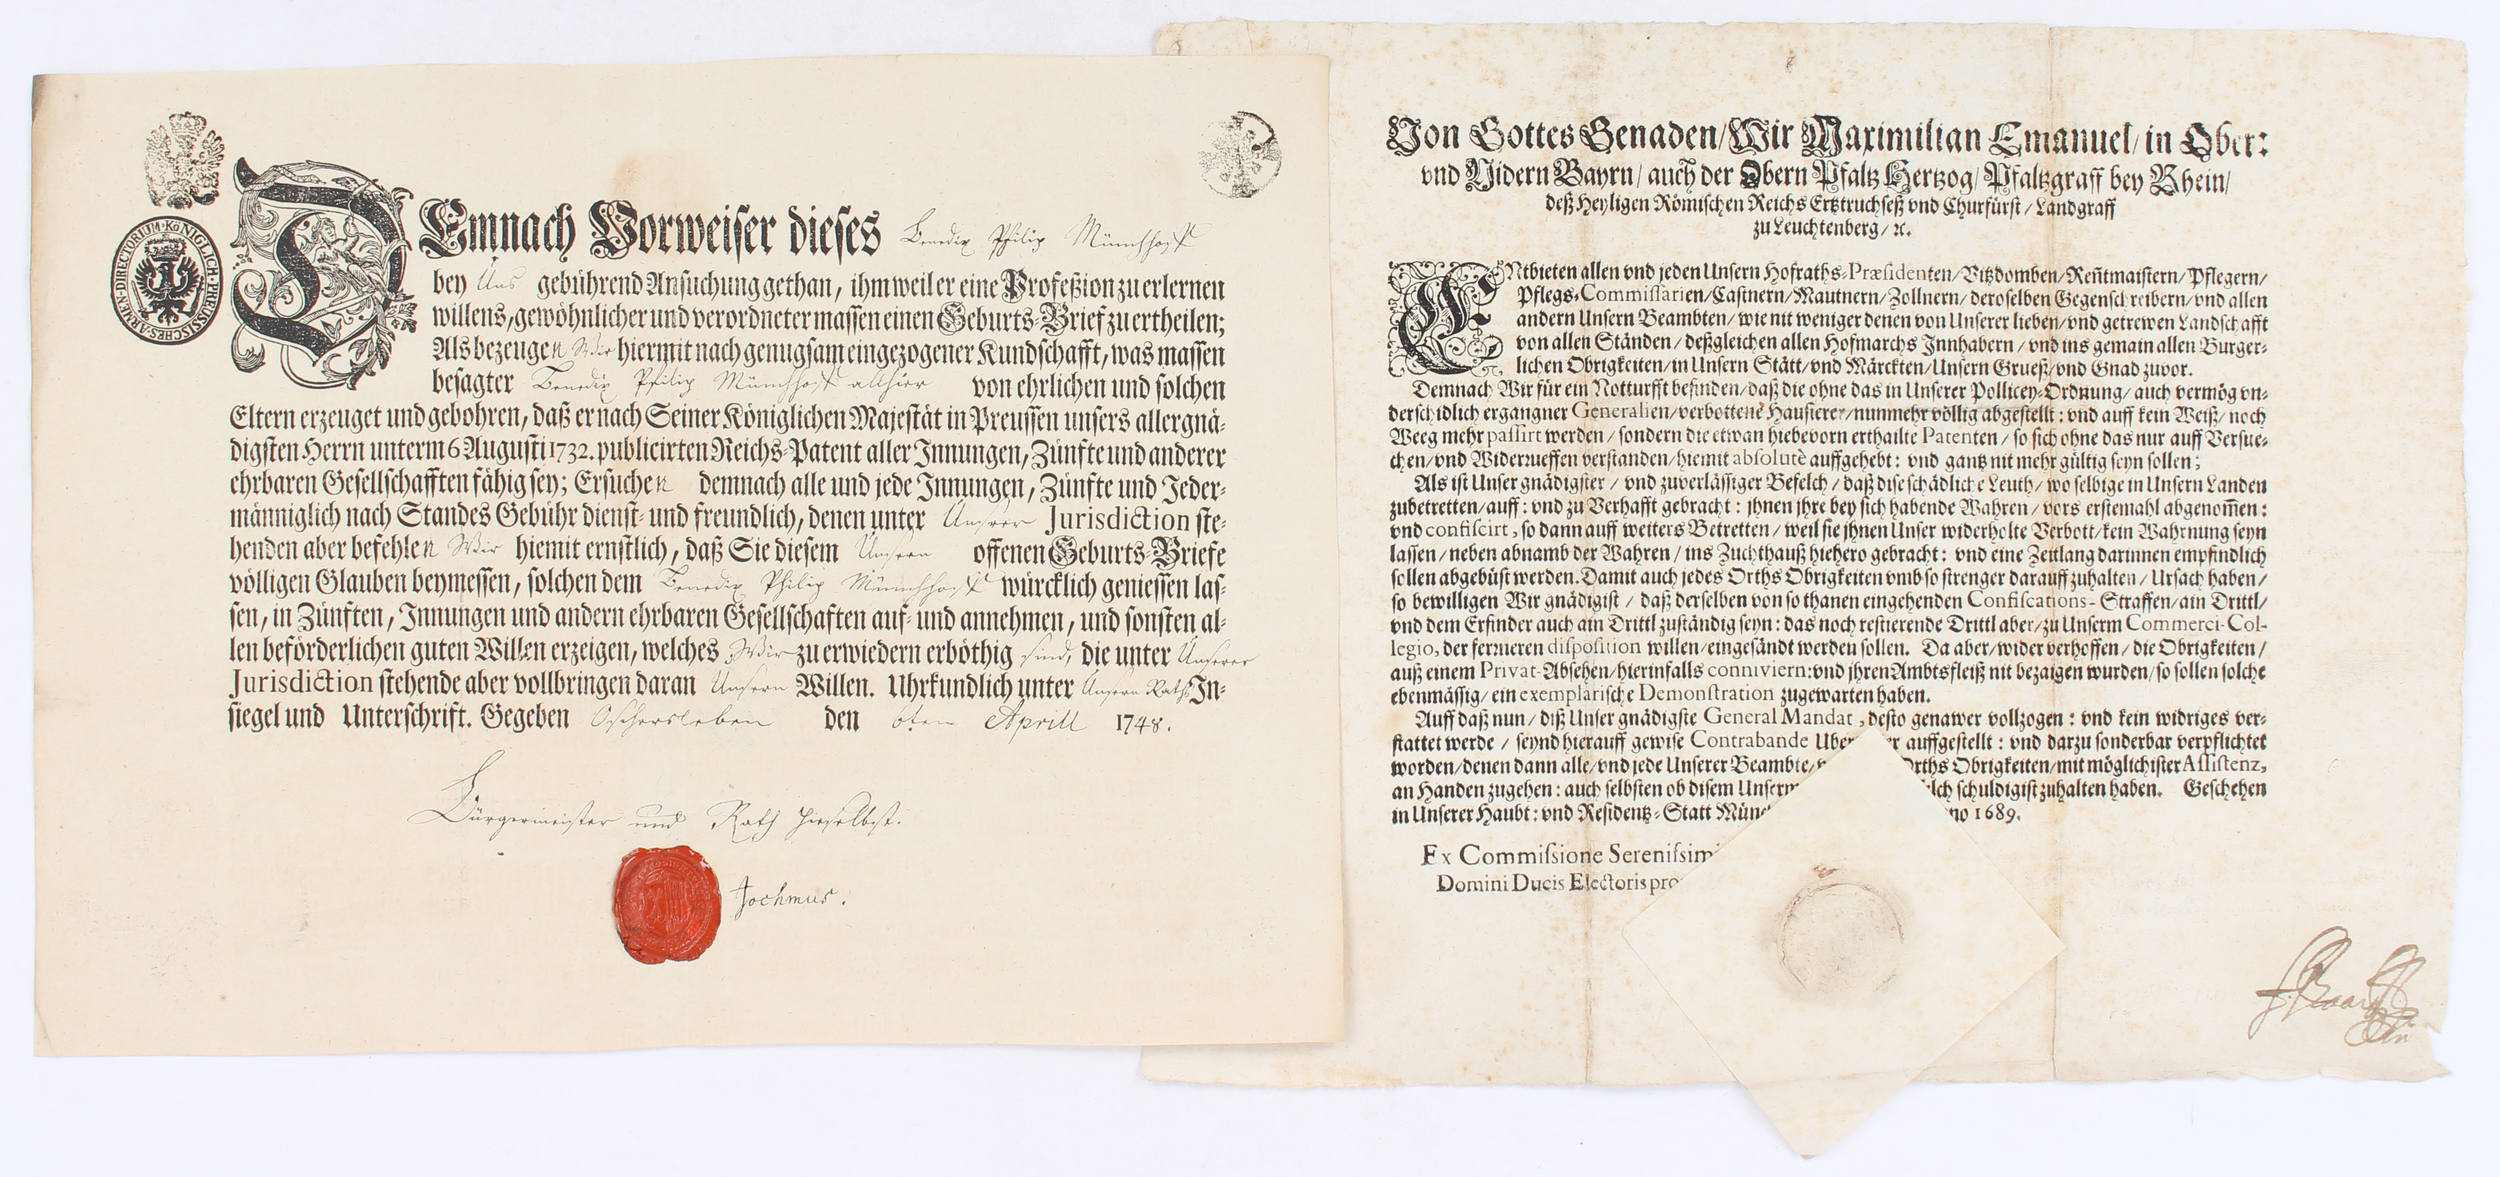 KÖNIGLICH·PREUSSISCHES·ARMEN·DIRECTORIUM·
DEmnach Vorweiser dieses Benedix Philip Münchhoff
bey Uns gebührend Ansuchung gethan, ihm weil er eine Profeßion zu erlernen
willens, gewöhnlicher und verordneter massen einen Geburts-Brief zu ertheilen;
Als bezeugen Wir hiermit nach genugsam eingezogener Kundschafft, was massen
besagter Benedix Philip Münchhoff allhier von ehrlichen und solchen
Eltern erzeuget und gebohren, daß er nach Seiner Königlichen Majestät in Preussen unsers allergnä-
digsten Herrn unterm 6 Augusti 1732. publicirten Reichs-Patent aller Innungen, Zünfte und anderer
ehrbaren Gesellschafften fähig sey; Ersuchen demnach alle und jede Innungen, Zünfte und Jeder-
männiglich nach Standes Gebühr dienst- und freundlich, denen unter Unsrer Jurisdiction ste-
henden aber befehlen Wir hiemit ernstlich, daß Sie diesem Unsern offenen Geburts-Briefe
völligen Glauben beymessen, solchen dem Benedix Philip Münchhoff würcklich geniessen las-
sen, in Zünften, Innungen und andern ehrbaren Gesellschaften auf- und annehmen, und sonsten al-
len beförderlichen guten Willen erzeigen, welches Wir zu erwiedern erböthig sind, die unter Unserer
Jurisdiction stehende aber vollbringen daran Unsern Willen. Uhrkundlich unter Unsern Raths In-
siegel und Unterschrift. Gegeben Oschersleben den 6ten Aprill 1748.
Bürgermeister und Rath hieselbst.
Jochmus.
Von Gottes Genaden/Wir Maximilian Emanuel/in Ober:
vnd Nidern Bayrn/ auch der Obern Pfaltz Hertzog/ Pfaltzgraff bey Rhein/
deß Heyligen Römischen Reichs Ertztruchseß vnd Churfürst/Landgraff
zu Leuchtenberg/ ꝛc.
ENtbieten allen vnd jeden Unsern Hofraths-Præsidenten/Vitzdomben/Rent̃maistern/Pflegern/
Pflegs-Commissarien/Castnern/Mautnern/Zollnern/deroselben Gegenschreibern/vnd allen
andern Unsern Beambten/wie nit weniger denen von Unserer lieben/vnd getrewen Landschafft
von allen Ständen/deßgleichen allen Hofmarchs Innhabern/vnd ins gemain allen Burger-
lichen Obrigkeiten/in Unsern Stätt/vnd Märckten/Unsern Grueß/vnd Gnad zuvor.
Demnach Wir für ein Notturfft befinden/daß die ohne das in Unserer Pollicey-Ordnung/auch vermög vn-
derschidlich ergangner Generalien/verbottene Hausierer/nunmehr völlig abgestellt: vnd auff kein Weiß/noch
Weeg mehr passirt werden/sondern die etwan hiebevorn erthailte Patenten/so sich ohne das nur auff Versue-
chen/vnd Widerrueffen verstanden/hiemit absolutè auffgehebt: vnd gantz nit mehr gültig seyn sollen;
Als ist Unser gnädigster/vnd zuverlässiger Befelch/daß dise schädliche Leuth/wo selbige in Unsern Landen
zubetretten/auff: vnd zu Verhafft gebracht: jhnen jhre bey sich habende Wahren/vors erstemahl abgenom̃en:
vnd confiscirt, so dann auff weiters Betretten/weil sie jhnen Unser widerholte Verbott/kein Wahrnung seyn
lassen/neben abnamb der Wahren/ins Zuchthauß hiehero gebracht: vnd eine Zeitlang darinnen empfindlich
sollen abgebüst werden. Damit auch jedes Orths Obrigkeiten vmb so strenger darauff zuhalten/Ursach haben/
so bewilligen Wir gnädigist/daß derselben von so thanen eingehenden Confiscations-Straffen/ain Drittl/
vnd dem Erfinder auch ain Drittl zuständig seyn: das noch restierende Drittl aber/zu Unserm Commerci-Col-
legio, der ferrneren disposition willen/eingesändt werden sollen. Da aber/wider verhoffen/die Obrigkeiten/
auß einem Privat-Absehen/hierinfalls conniviern: vnd jhren Ambtsfleiß nit bezaigen wurden/so sollen solche
ebenmässig/ein exemplarische Demonstration zugewarten haben.
Auff daß nun/diß Unser gnädigste General Mandat, desto genawer vollzogen: vnd kein widriges ver-
stattet werde/seynd hierauff gewise Contrabande Uber r auffgestellt: vnd darzu sonderbar verpflichtet
worden/denen dann alle/vnd jede Unserer Beambte/ Orths Obrigkeiten/mit möglichister Assistenz,
an Handen zugehen: auch selbsten ob disem Unserm lch schuldigist zuhalten haben. Geschehen
in Unserer Haubt: vnd Residentz-Statt Münc no 1689.
Ex Commissione Serenissimi
Domini Ducis Electoris pro